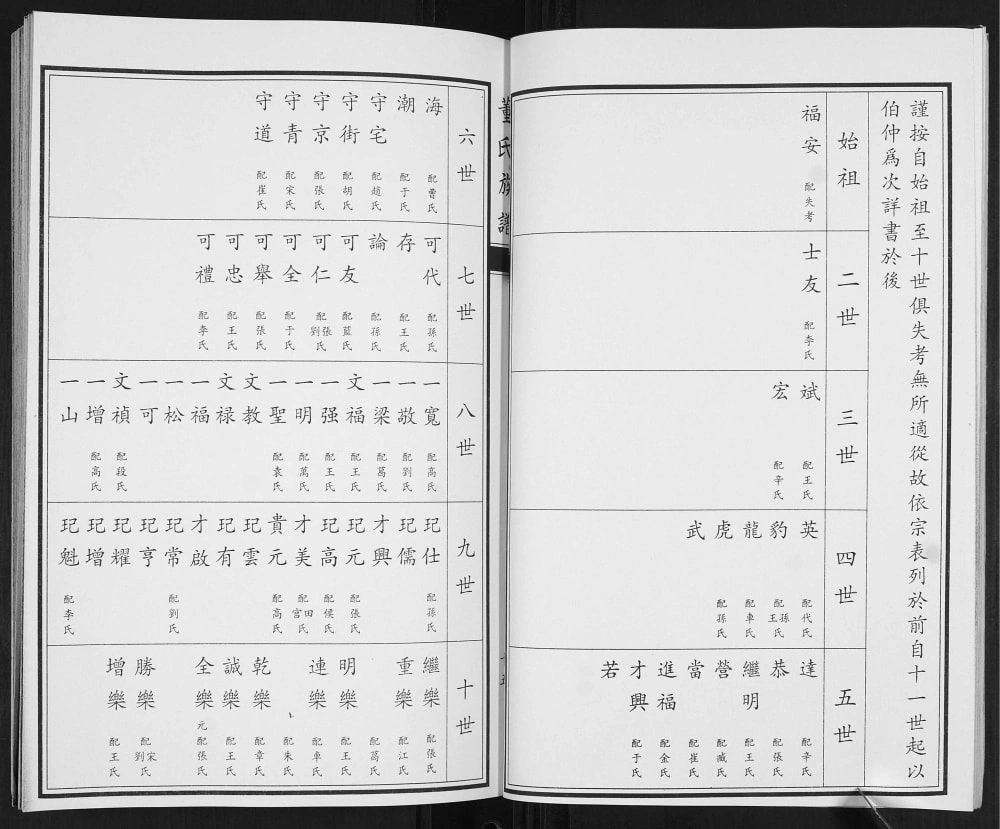 謹按自始祖至十世俱失考無所適從故依宗表列於前自十一世起以
伯仲爲次詳書於後
始祖
福安 配失考
二世
士友 配李氏
三世
斌 配王氏
宏 配辛氏
四世
英 配代氏
豹 配孫王氏
龍 配車氏
虎 配孫氏
武
五世
達 配辛氏
恭 配張氏
繼明 配王氏
營 配臧氏
當 配崔氏
進福 配金氏
才興 配于氏
若
董氏族譜
六世
海 配曹氏
潮 配于氏
守宅 配趙氏
守街 配胡氏
守京 配張氏
守青 配宋氏
守道 配崔氏
七世
可代 配孫氏
存 配王氏
論 配孫氏
可友 配藍氏
可仁 配張劉氏
可全 配于氏
可舉 配張氏
可忠 配王氏
可禮 配李氏
八世
一寬 配高氏
一敬 配劉氏
一梁 配葛氏
文福 配王氏
一强 配王氏
一明 配萬氏
一聖 配袁氏
文教
文禄
一福
一松
一可
文禎 配段氏
一增 配高氏
一山
九世
玘仕 配孫氏
玘儒
才興
玘元 配張氏
玘高 配侯氏
才美 配田宫氏
貴元 配高氏
玘雲
玘有
才啟
玘常 配劉氏
玘亨
玘耀
玘增
玘魁 配李氏
十世
繼樂 配張氏
重樂 配江氏
配葛氏
明樂 配王氏
連樂 配車氏
配朱氏
乾樂 配章氏
誠樂 配王氏
全樂 元配張氏
勝樂 配宋劉氏
增樂 配王氏